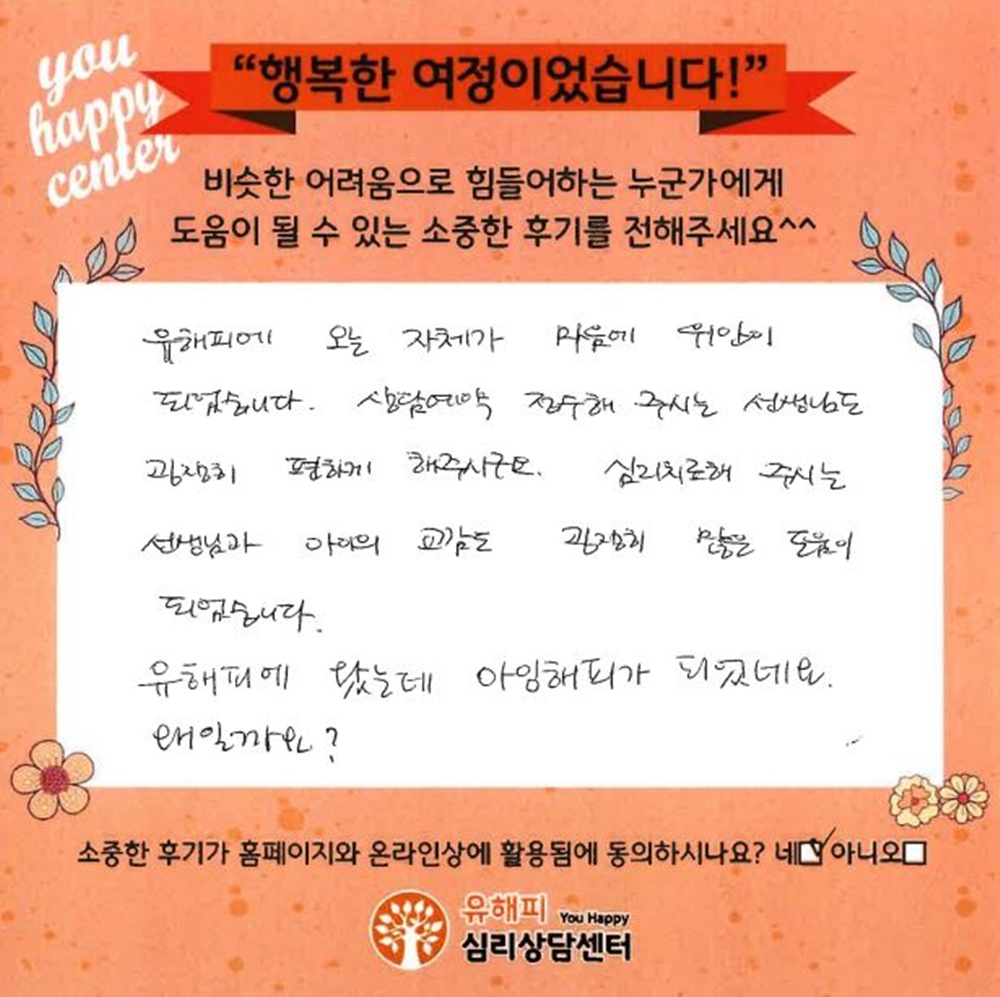 you
happy
center
“행복한 여정이었습니다!”
비슷한 어려움으로 힘들어하는 누군가에게
도움이 될 수 있는 소중한 후기를 전해주세요^^
유해피에 오는 자체가 마음에 위안이
되었습니다. 상담예약 접수해 주시는 선생님도
굉장히 편하게 해주시구요. 심리치료해 주시는
선생님과 아이의 교감도 굉장히 많은 도움이
되었습니다.
유해피에 왔는데 아임해피가 되었네요.
왜일까요?
소중한 후기가 홈페이지와 온라인상에 활용됨에 동의하시나요? 네☑ 아니오☐
유해피 You Happy
심리상담센터